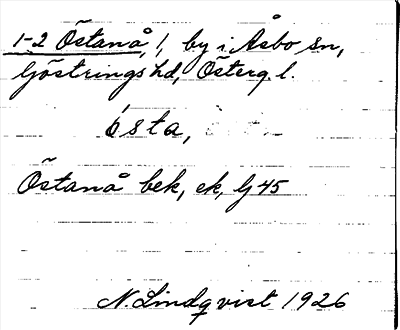 1-2 Östanå, 1, by i Åsbo sn,
Göstrings hd, Österg. l.
östa,
Östanå bek, ek, Gj 45
N. Lindqvist 1926